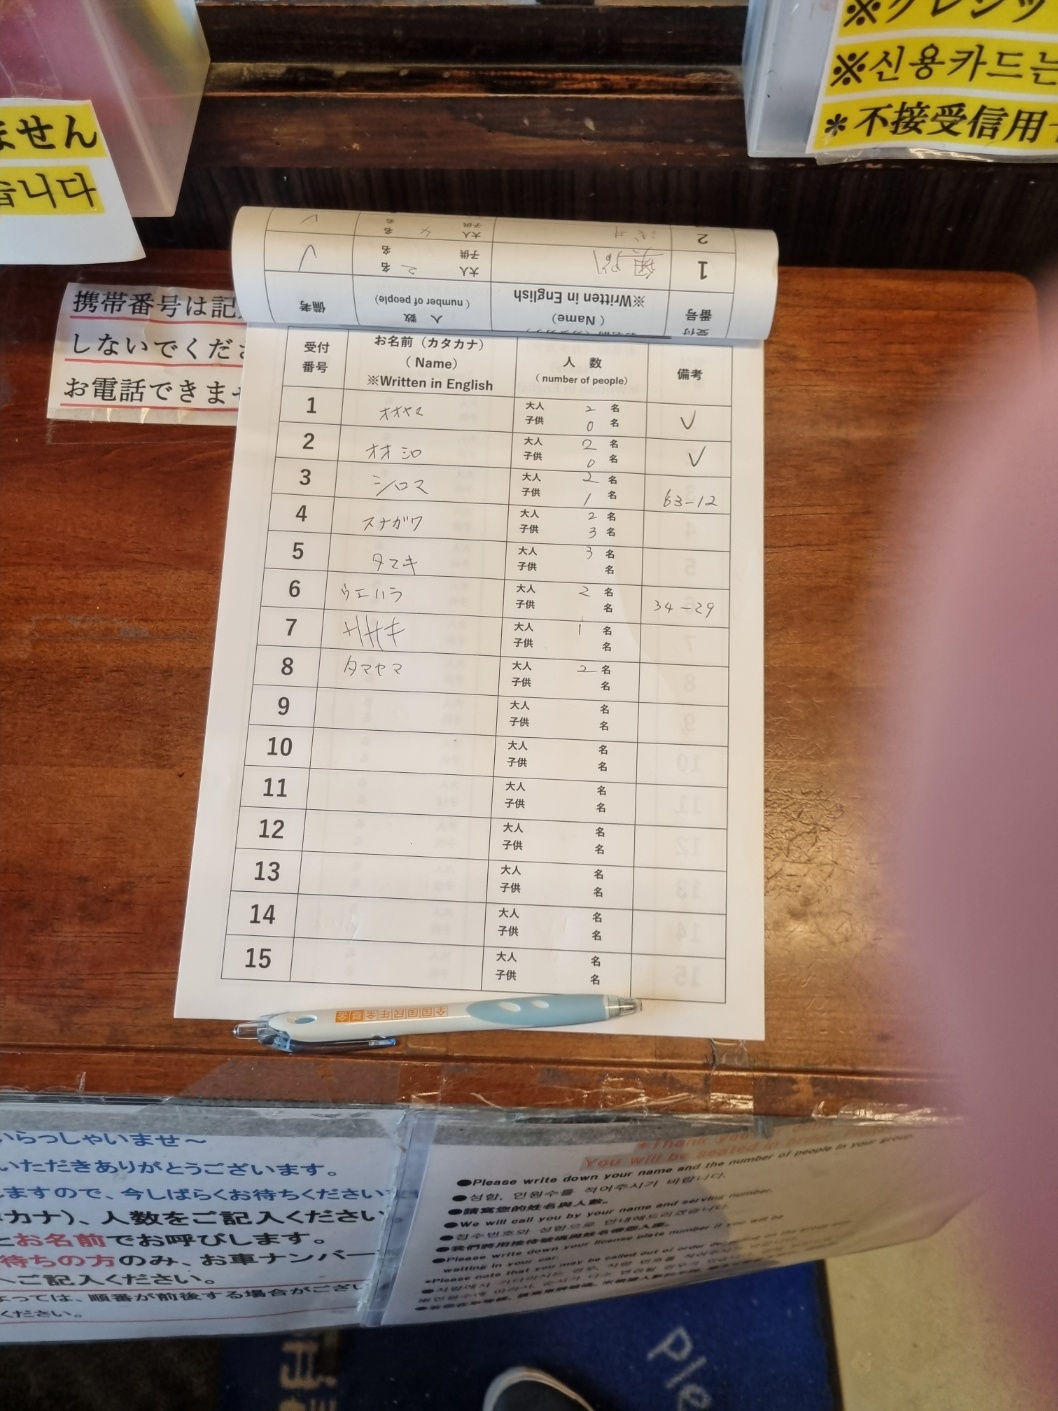 ※クレジッ
※신용카드는
＊不接受信用卡
ません
습니다
携帯番号は記
しないでくださ
お電話できませ
2
大人 名
子供 名
1
大人 2 名
子供 名
受付番号
(Name)
※Written in English
人 数
(number of people)
備考
受付番号
お名前（カタカナ）
（Name）
※Written in English
人 数
(number of people)
備考
1 オオヤマ 大人 2 名 子供 0 名 ✓
2 オオシロ 大人 2 名 子供 0 名 ✓
3 シロマ 大人 2 名 子供 1 名 63-12
4 スナガワ 大人 2 名 子供 3 名
5 タマキ 大人 3 名 子供 名
6 ウエハラ 大人 2 名 子供 名 34-29
7 ササキ 大人 1 名 子供 名
8 タマヤマ 大人 2 名 子供 名
9 大人 名 子供 名
10 大人 名 子供 名
11 大人 名 子供 名
12 大人 名 子供 名
13 大人 名 子供 名
14 大人 名 子供 名
15 大人 名 子供 名
全国国民年金基金
いらっしゃいませ～
いただきありがとうございます。
しますので、今しばらくお待ちください
カナ）、人数をご記入ください
とお名前でお呼びします。
待ちの方のみ、お車ナンバー
へご記入ください。
よっては、順番が前後する場合がござい
ください。
You will be seated
●Please write down your name and the number of people in your group.
●성함, 인원수를 적어주시기 바랍니다.
●請寫您的姓名與人數。
●We will call you by your name and serving number.
●접수번호와 성함으로 안내해드리겠습니다.
●Please write down your license plate number if you will be
waiting in your car.
Ple